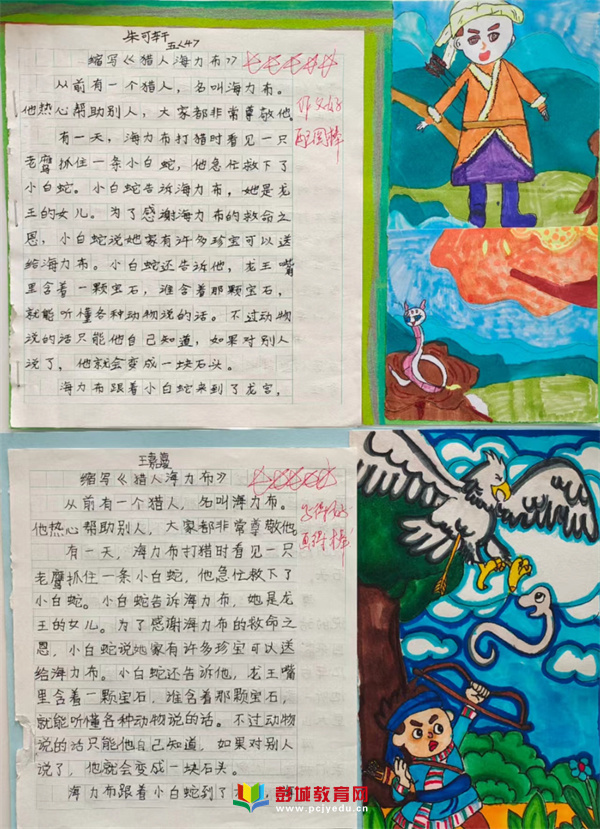 朱可轩
五(4)
缩写《猎人海力布》
从前有一个猎人，名叫海力布。
他热心帮助别人，大家都非常尊敬他。
有一天，海力布打猎时看见一只
老鹰抓住一条小白蛇，他急忙救下了
小白蛇。小白蛇告诉海力布，她是龙
王的女儿。为了感谢海力布的救命之
恩，小白蛇说她家有许多珍宝可以送
给海力布。小白蛇还告诉他，龙王嘴
里含着一颗宝石，谁含着那颗宝石，
就能听懂各种动物说的话。不过动物
说的话只能他自己知道，如果对别人
说了，他就会变成一块石头。
海力布跟着小白蛇来到了龙宫，
作文好
配图棒
王嘉
缩写《猎人海力布》
从前有一个猎人，名叫海力布。
他热心帮助别人，大家都非常尊敬他。
有一天，海力布打猎时看见一只
老鹰抓住一条小白蛇，他急忙救下了
小白蛇。小白蛇告诉海力布，她是龙
王的女儿。为了感谢海力布的救命之
恩，小白蛇说她家有许多珍宝可以送
给海力布。小白蛇还告诉他，龙王嘴
里含着一颗宝石，谁含着那颗宝石，
就能听懂各种动物说的话。不过动物
说的话只能他自己知道，如果对别人
说了，他就会变成一块石头。
海力布跟着小白蛇到了
彭城教育网
www.pcjyedu.com